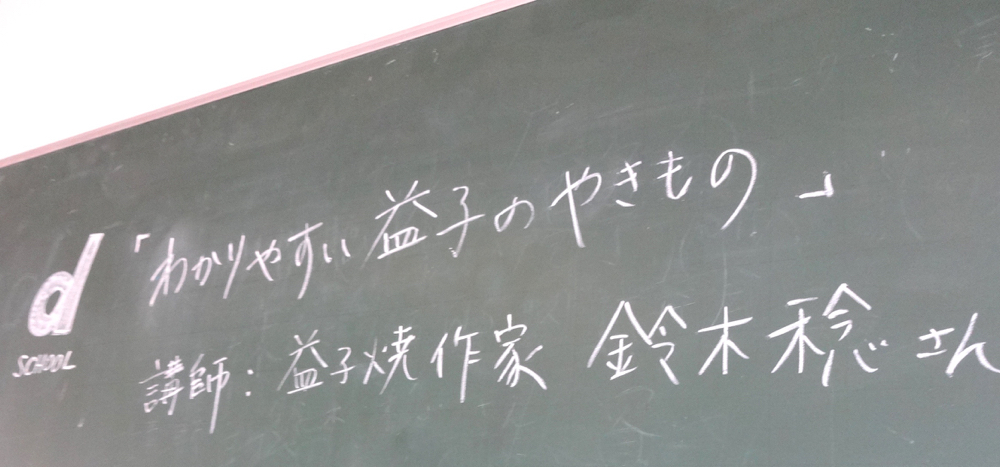 d
SCHOOL
「わかりやすい益子のやきもの」
講師：益子焼作家 鈴木稔さん